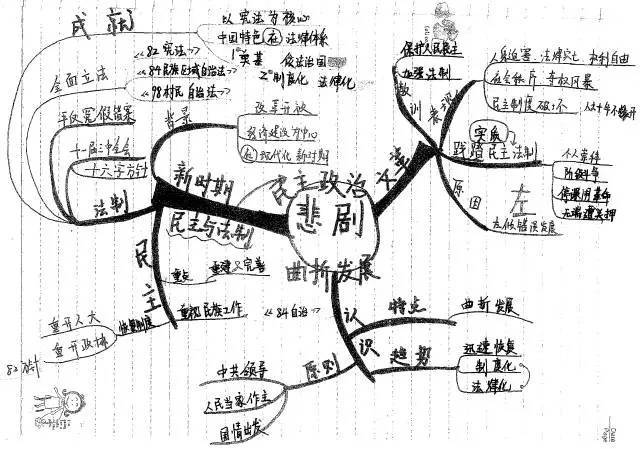 成就
以宪法为核心
中国特色(在)法律体系
1°奠基 依法治国
2°制度化 法律化
全面立法
《82宪法》
《84民族区域自治法》
《98村民自治法》
平反冤假错案
十一届三中全会
十六字方针
法制
背景
改革开放
经济建设为中心
现代化 新时期
新时期
民主与法制
民主
重点
重建与完善
重视民族工作
《84自治》
恢复制度
重开人大
重开政协
82方针
民主政治
悲剧
曲折发展
文革
保护人民民主
加强法制
教训
表现
民主制度破坏
实质
践踏民主法制
个人崇拜
阶级斗争
原因
左
左倾错误发展
认识
特点
曲折发展
趋势
迅速恢复
制度化
法律化
原则
中共领导
人民当家作主
国情出发